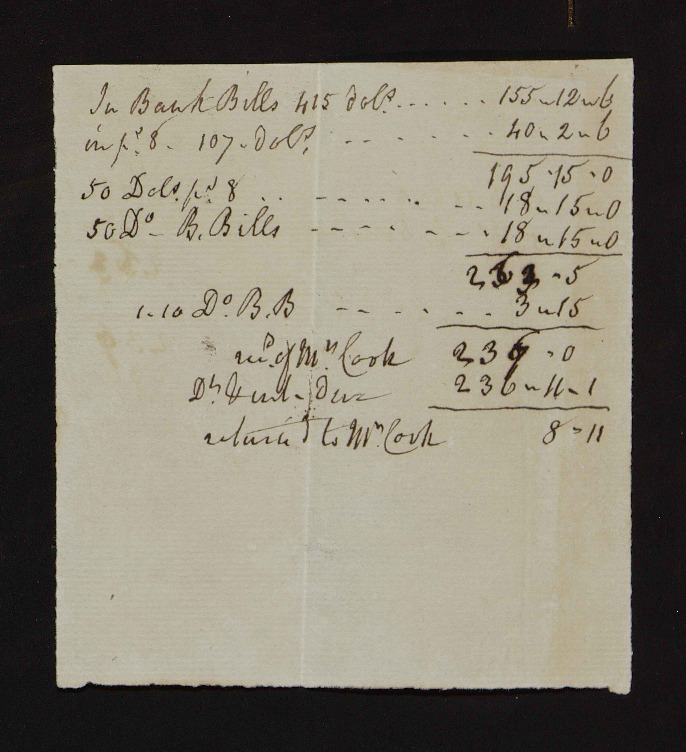 In Bank Bills 415 Dols. ...... 155 " 12 " 6
in ps. 8 - 107 - Dols. - - - - 40 " 2 " 6
195 " 15 - 0
50 Dols. ps. 8 .. - - - - .. - - 18 " 15 " 0
50 Do - B. Bills - - - - - - - 18 " 15 " 0
233 " 5
1-10 Do. B.B - - . - . . 3 " 15
recd. of Mrs. Cook 237 " 0
236 " 11 - 1
returned to Mrs. Cook 8 " 11